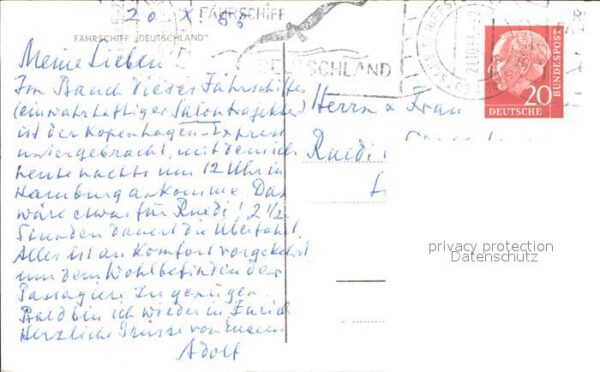 20. XI. 55
FÄHRSCHIFF
FÄHRSCHIFF „DEUTSCHLAND"
DEUTSCHLAND
Meine Lieben!
Im Bauch dieses Fährschiffes
(ein wahrhaftiger Salontrajekter)
ist der Kopenhagen-Express
untergebracht, mit dem ich
heute nachts um 12 Uhr in
Hamburg ankomme. Das
wäre etwas für Ruedi! 2 1/2
Stunden dauert die Überfahrt.
Alles ist an Komfort vorgekehrt
um dem Wohlbefinden der
Passagiere zu genügen.
Bald bin ich wieder in Zürich
Herzliche Grüsse von Eurem
Adolf
Herrn & Frau
Ruedi
20
DEUTSCHE
BUNDESPOST
privacy protection
Datenschutz